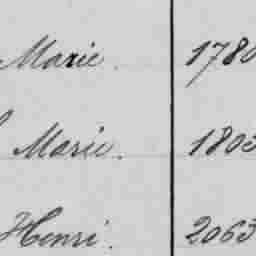 Marie. 1780
Marie. 1803
Henri. 2063